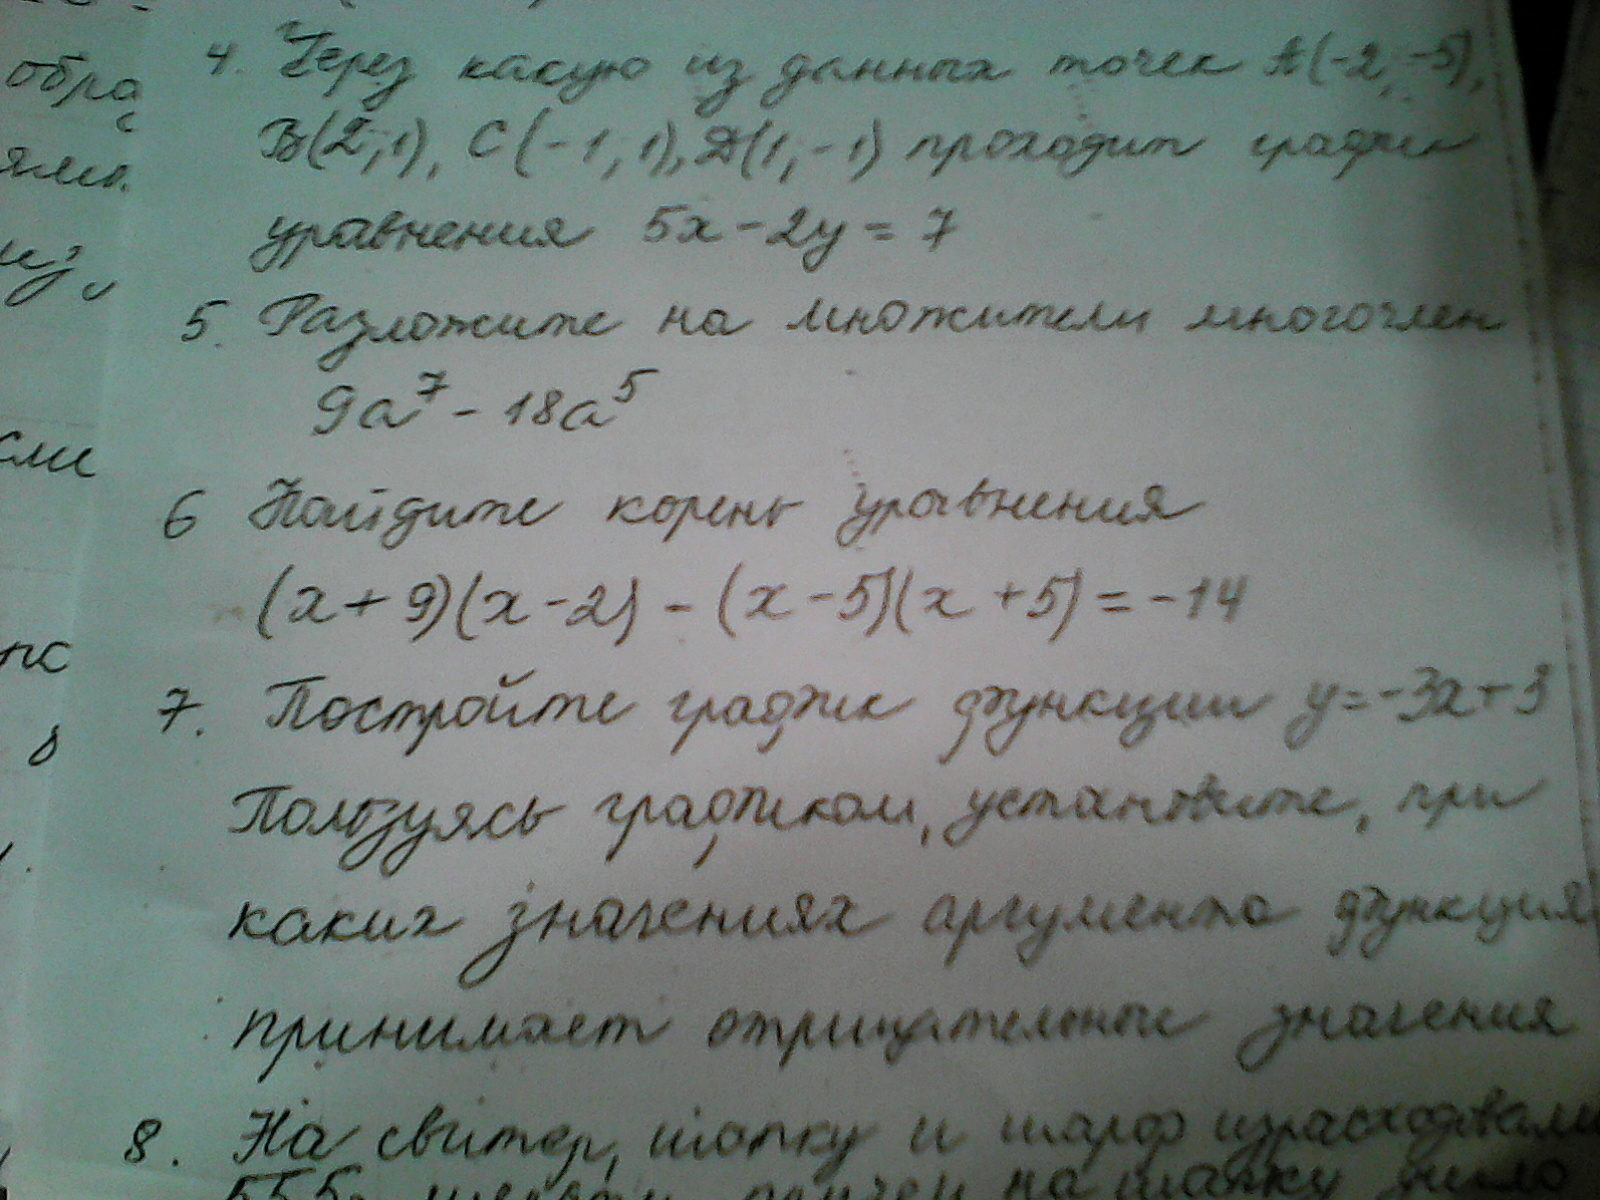 обра
4. Через какую из данных точек А(-2,-5),
В(2;1), С(-1;1), Д(1;-1) проходит график
уравнения 5x-2y=7
5. Разложите на множители многочлен
9a⁷-18a⁵
сли
6 Найдите корень уравнения
(x+9)(x-2)-(x-5)(x+5)=-14
7. Постройте график функции y=-3x+3
Пользуясь графиком, установите, при
каких значениях аргумента функция
принимает отрицательные значения
8. На свитер, шапку и шарф израсходовали
555г шерсти, причем на шапку ушло